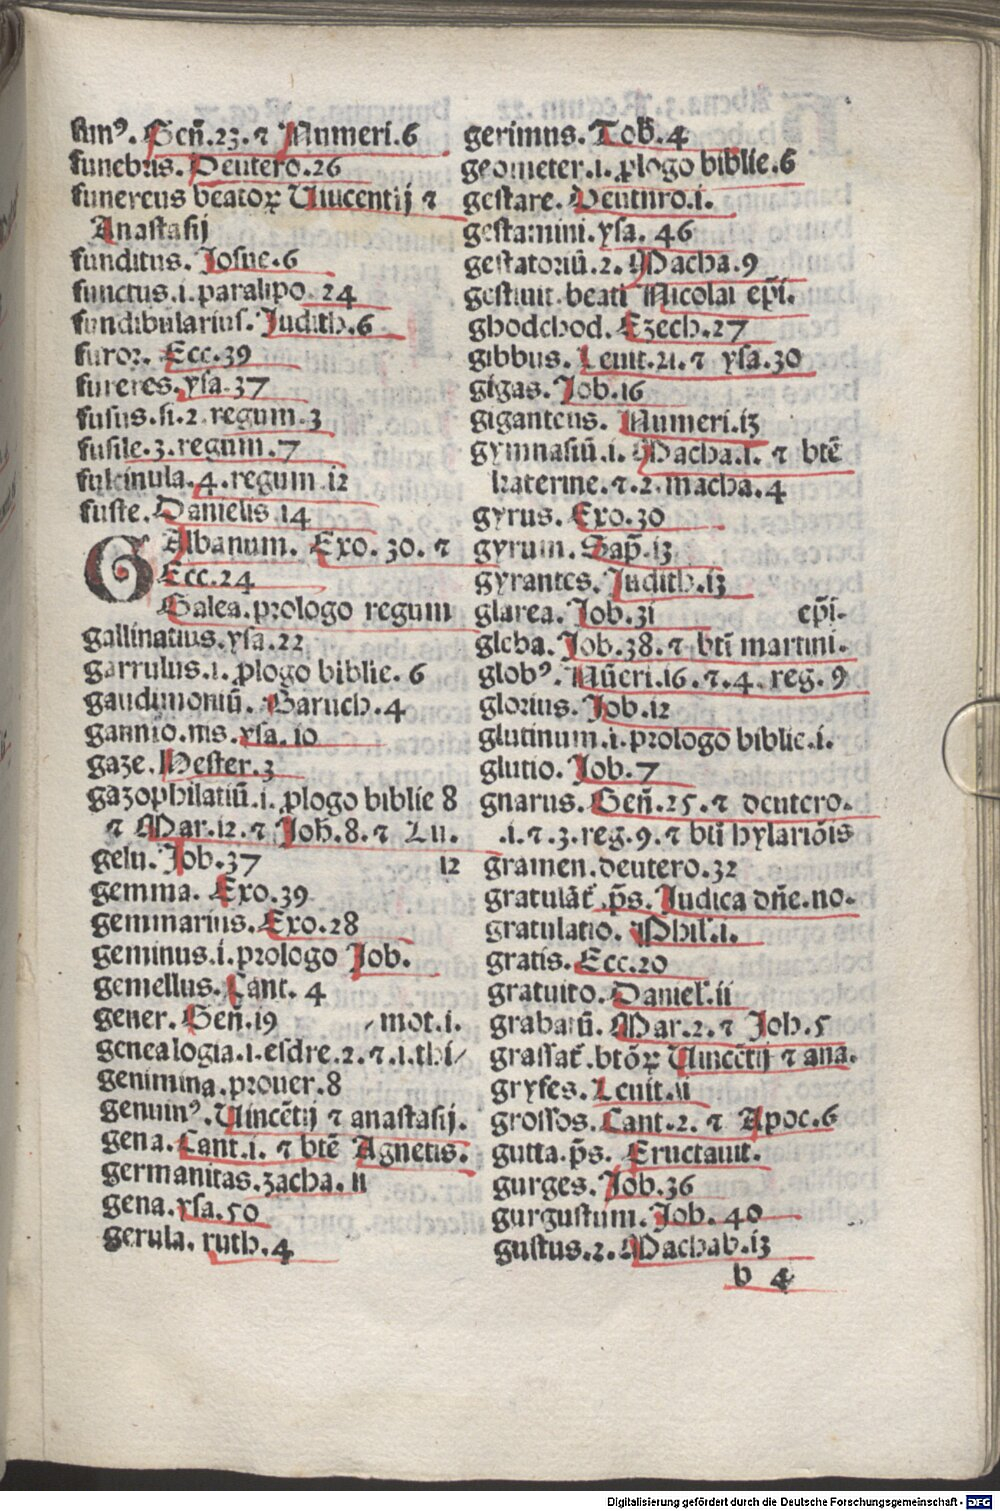 funꝰ. Gen̄.23.⁊ Numeri.6
funebris. Deutero.26
funereus beatoꝝ Vincentij ⁊
Anastasij
funditus. Josue.6
functus.i.paralipo.24
fundibularius. Judith.6
furor. Ecc.39
fureres.ysa.37
fusus.si.2.regum.3
fusile.3.regum.7
fuscinula.4.regum 12
fuste.Danielis 14
GAlbanum. Exo.30.⁊
Ecc.24
Galea.prologo regum
gallinatius.ysa.22
garrulus.i.ꝓlogo biblie.6
gaudimoniū.Baruch.4
gannio.nis.ysa.10
gaze.Hester.3
gazophilatiū.i.ꝓlogo biblie 8
⁊ Mar.12.⁊ Joh̄.8.⁊ Lu.
gelu.Job.37 12
gemma. Exo.39
gemmarius.Exo.28
geminus.i.prologo Job.
gemellus.Cant.4
gener.Gen̄.19 /mot.i.
genealogia.i.esdre.2.⁊.i.thi/
genimina.prouer.8
genuinꝰ.Vincētij ⁊ anastasij.
gena.Cant.i.⁊ btē Agnetis.
germanitas.zacha.ii
gena.ysa.50
gerula.ruth.4
gerimus.Tob̄.4
geometer.i.ꝓlogo biblie.6
gestare.Deuturo.i.
gestamini.ysa.46
gestatoriū.2.Macha.9
gestiuit.beati Nicolai ep̄i.
ghodchod.Ezech.27
gibbus.Leuit.21.⁊ ysa.30
gigas.Job.16
giganteus. Numeri.i3
gymnasiū.i.Macha.i.⁊ btē
katerine.⁊.2.macha.4
gyrus.Exo.30
gyrum.Sap̄.i3
gyrantes.Judith.i3
glarea.Job.3i ep̄i.
gleba.Job.38.⁊ bti̅ martini.
globꝰ.Nūeri.16.⁊.4.reg.9
glorius.Job.12
glutinum.i.prologo biblie.i.
glutio.Job.7
gnarus.Gen̄.25.⁊ deutero.
.i.⁊.3.reg.9.⁊ bti̅ hylariōis
gramen.deutero.32
gratulāt̄.p̄s.Judica dn̄e.no.
gratulatio.Phil̄.i.
gratis.Ecc.20
gratuito.Daniel̄.ii
grabatū.Mar.2.⁊ Job.5
grassat̄.btōꝝ Vincētij ⁊ ana.
gryfes.Leuit.ii
grossos.Cant.2.⁊ Apoc.6
gutta.p̄s.Eructauit.
gurges.Job.36
gurgustum.Job.40
gustus.2.Machab.i3
b 4
Digitalisierung gefördert durch die Deutsche Forschungsgemeinschaft - DFG